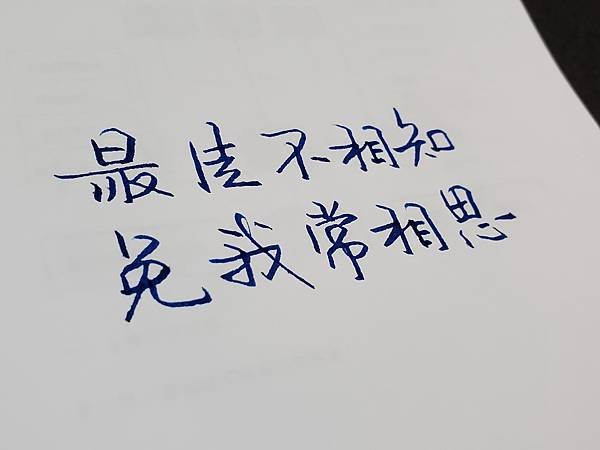 最佳不相知
免我常相思